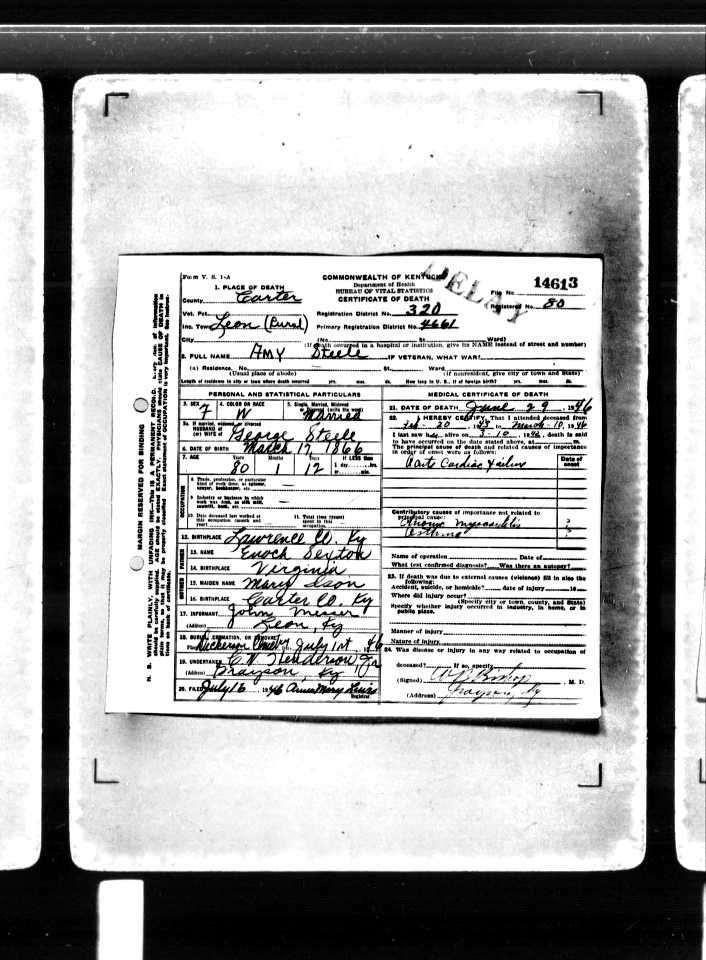 Form V. S. 1-A
COMMONWEALTH OF KENTUCKY
Department of Health
BUREAU OF VITAL STATISTICS
CERTIFICATE OF DEATH
DELAY
File No. 14613
Registered No. 80
1. PLACE OF DEATH
County Carter
Vot. Pct.
Registration District No. 320
Inc. Town Leon (Rural)
Primary Registration District No. 4661
City (No. St. Ward)
(If death occurred in a hospital or institution, give its NAME instead of street and number)
2. FULL NAME Amy Steele IF VETERAN, WHAT WAR?
(a) Residence. No. St., Ward
(Usual place of abode) (If nonresident, give city or town and State)
Length of residence in city or town where death occurred yrs. mos. ds. How long in U. S., if of foreign birth? yrs. mos. ds.
PERSONAL AND STATISTICAL PARTICULARS
3. SEX F
4. COLOR OR RACE W
5. Single, Married, Widowed or Divorced (write the word) Married
5a. If married, widowed or divorced
HUSBAND of
(or) WIFE of George Steele
6. DATE OF BIRTH March 17 1866
7. AGE Years 80 Months 1 Days 12 If LESS than 1 day, hrs. or min.
OCCUPATION
8. Trade, profession, or particular
kind of work done, as spinner,
sawyer, bookkeeper, etc.
9. Industry or business in which
work was done, as silk mill,
sawmill, bank, etc.
10. Date deceased last worked at
this occupation (month and
year)
11. Total time (years)
spent in this
occupation
12. BIRTHPLACE Lawrence Co. Ky
FATHER
13. NAME Enoch Sexton
14. BIRTHPLACE Virginia
MOTHER
15. MAIDEN NAME Mary Ison
16. BIRTHPLACE Carter Co, Ky
17. INFORMANT John
(Address) Leon, Ky
18. BURIAL, CREMATION, OR REMOVAL
Place July 1st, 46
19. UNDERTAKER C.W. Henderson, Jr
(Address) Grayson, Ky
20. FILED July 16, 1946 Anna Mary Lewis
Registrar
MEDICAL CERTIFICATE OF DEATH
21. DATE OF DEATH June 29, 1946
22. I HEREBY CERTIFY, That I attended deceased from
Feb- 20, 1943 to March-10, 1946
I last saw her alive on 3-10, 1946, death is said
to have occurred on the date stated above, at m.
The principal cause of death and related causes of importance
in order of onset were as follows:
Date of onset
Cardiac Failure
Contributory causes of importance not related to
principal cause:
Chronic myocarditis
Asthma
Name of operation Date of
What test confirmed diagnosis? Was there an autopsy?
23. If death was due to external causes (violence) fill in also the
following:
Accident, suicide, or homicide? date of injury 19
Where did injury occur?
(Specify city or town, county, and State)
Specify whether injury occurred in industry, in home, or in
public place.
Manner of injury
Nature of injury
24. Was disease or injury in any way related to occupation of
deceased? If so, specify
(Signed) Bishop, M. D.
(Address) Grayson, Ky
MARGIN RESERVED FOR BINDING
N. B. WRITE PLAINLY, WITH UNFADING INK—This is a PERMANENT RECORD. Every item of information
should be carefully supplied. AGE should be stated EXACTLY. PHYSICIANS should state CAUSE OF DEATH in
plain terms, so that it may be properly classified. Exact statement of OCCUPATION is very important. See instructions on back of certificate.